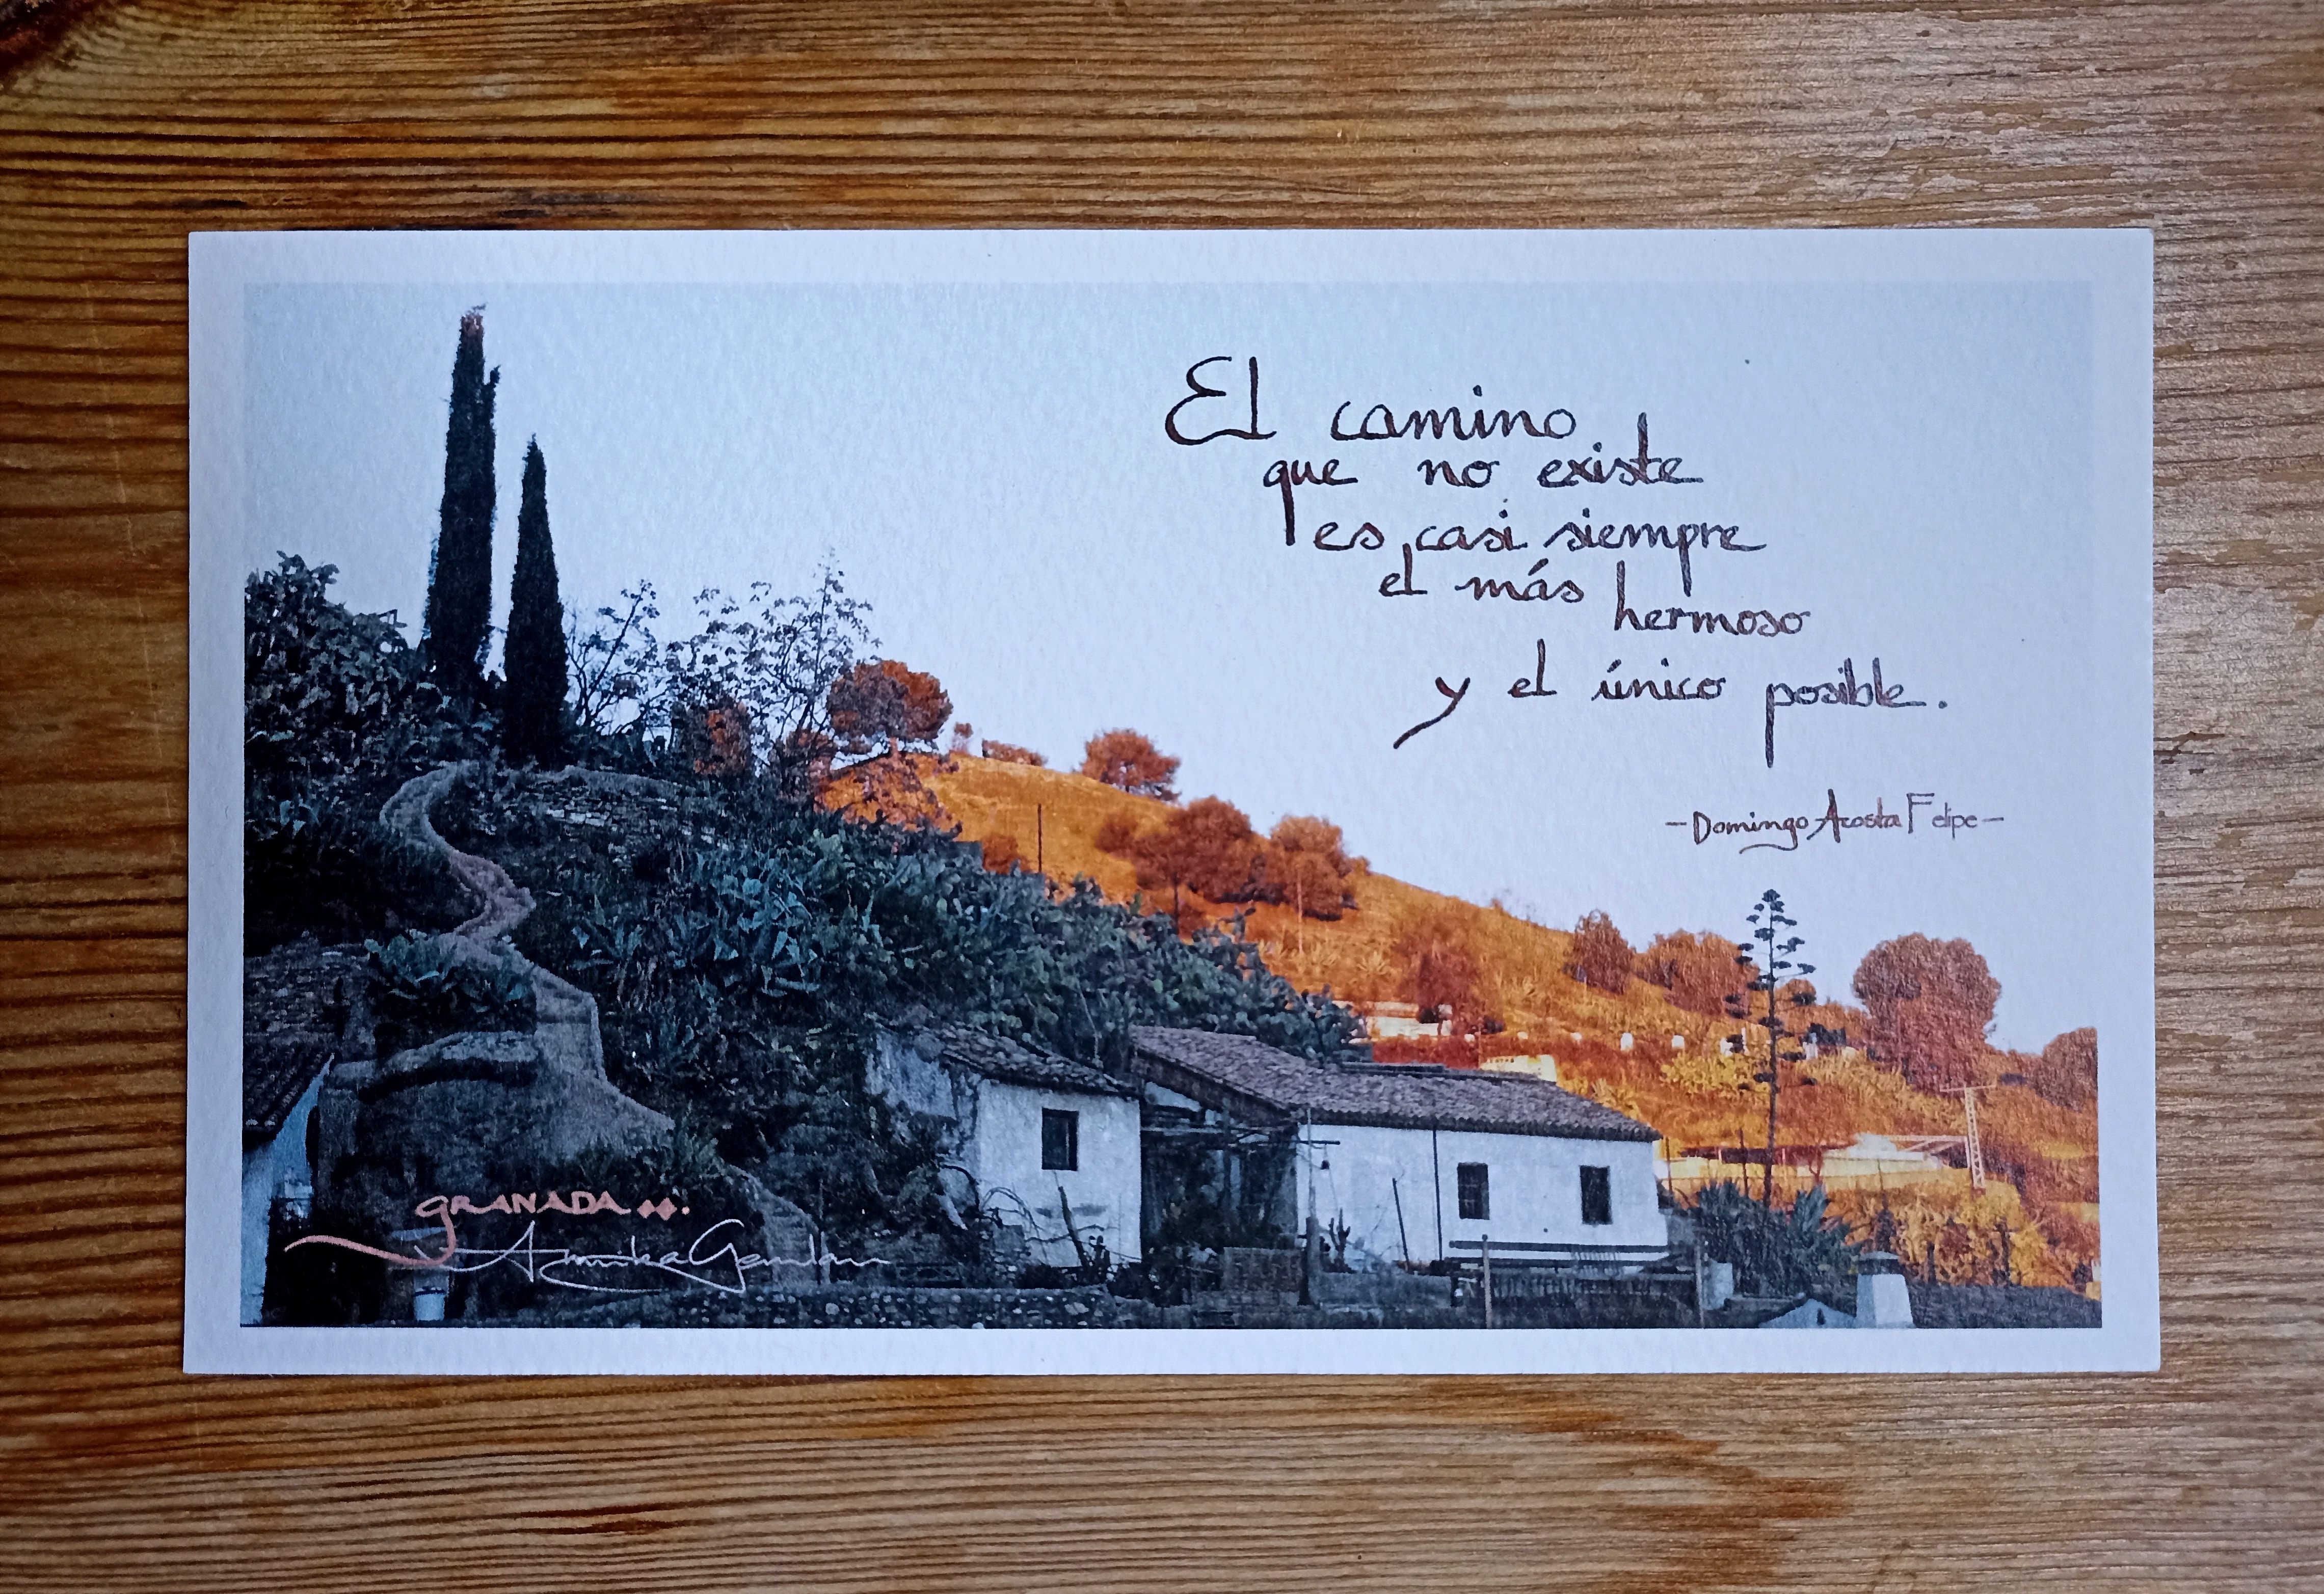 El camino
que no existe
es casi siempre
el más hermoso
y el único posible.
-Domingo Acosta Felipe-
GRANADA
Annika